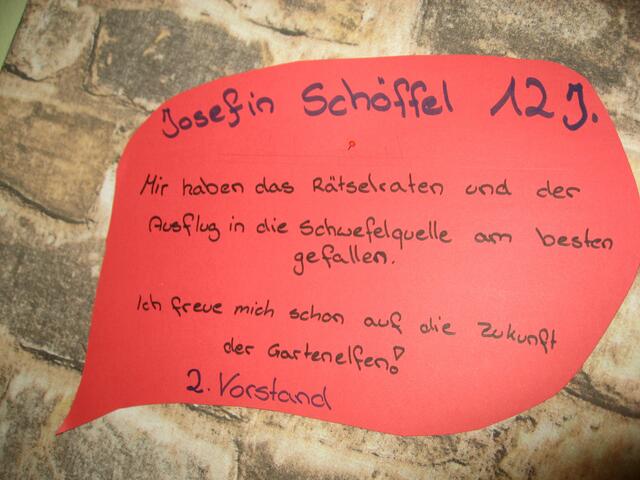 Josefin Schöffel 12 J.
Mir haben das Rätselraten und der
Ausflug in die Schwefelquelle am besten
gefallen.
Ich freue mich schon auf die Zukunft
der Gartenelfen!
2. Vorstand